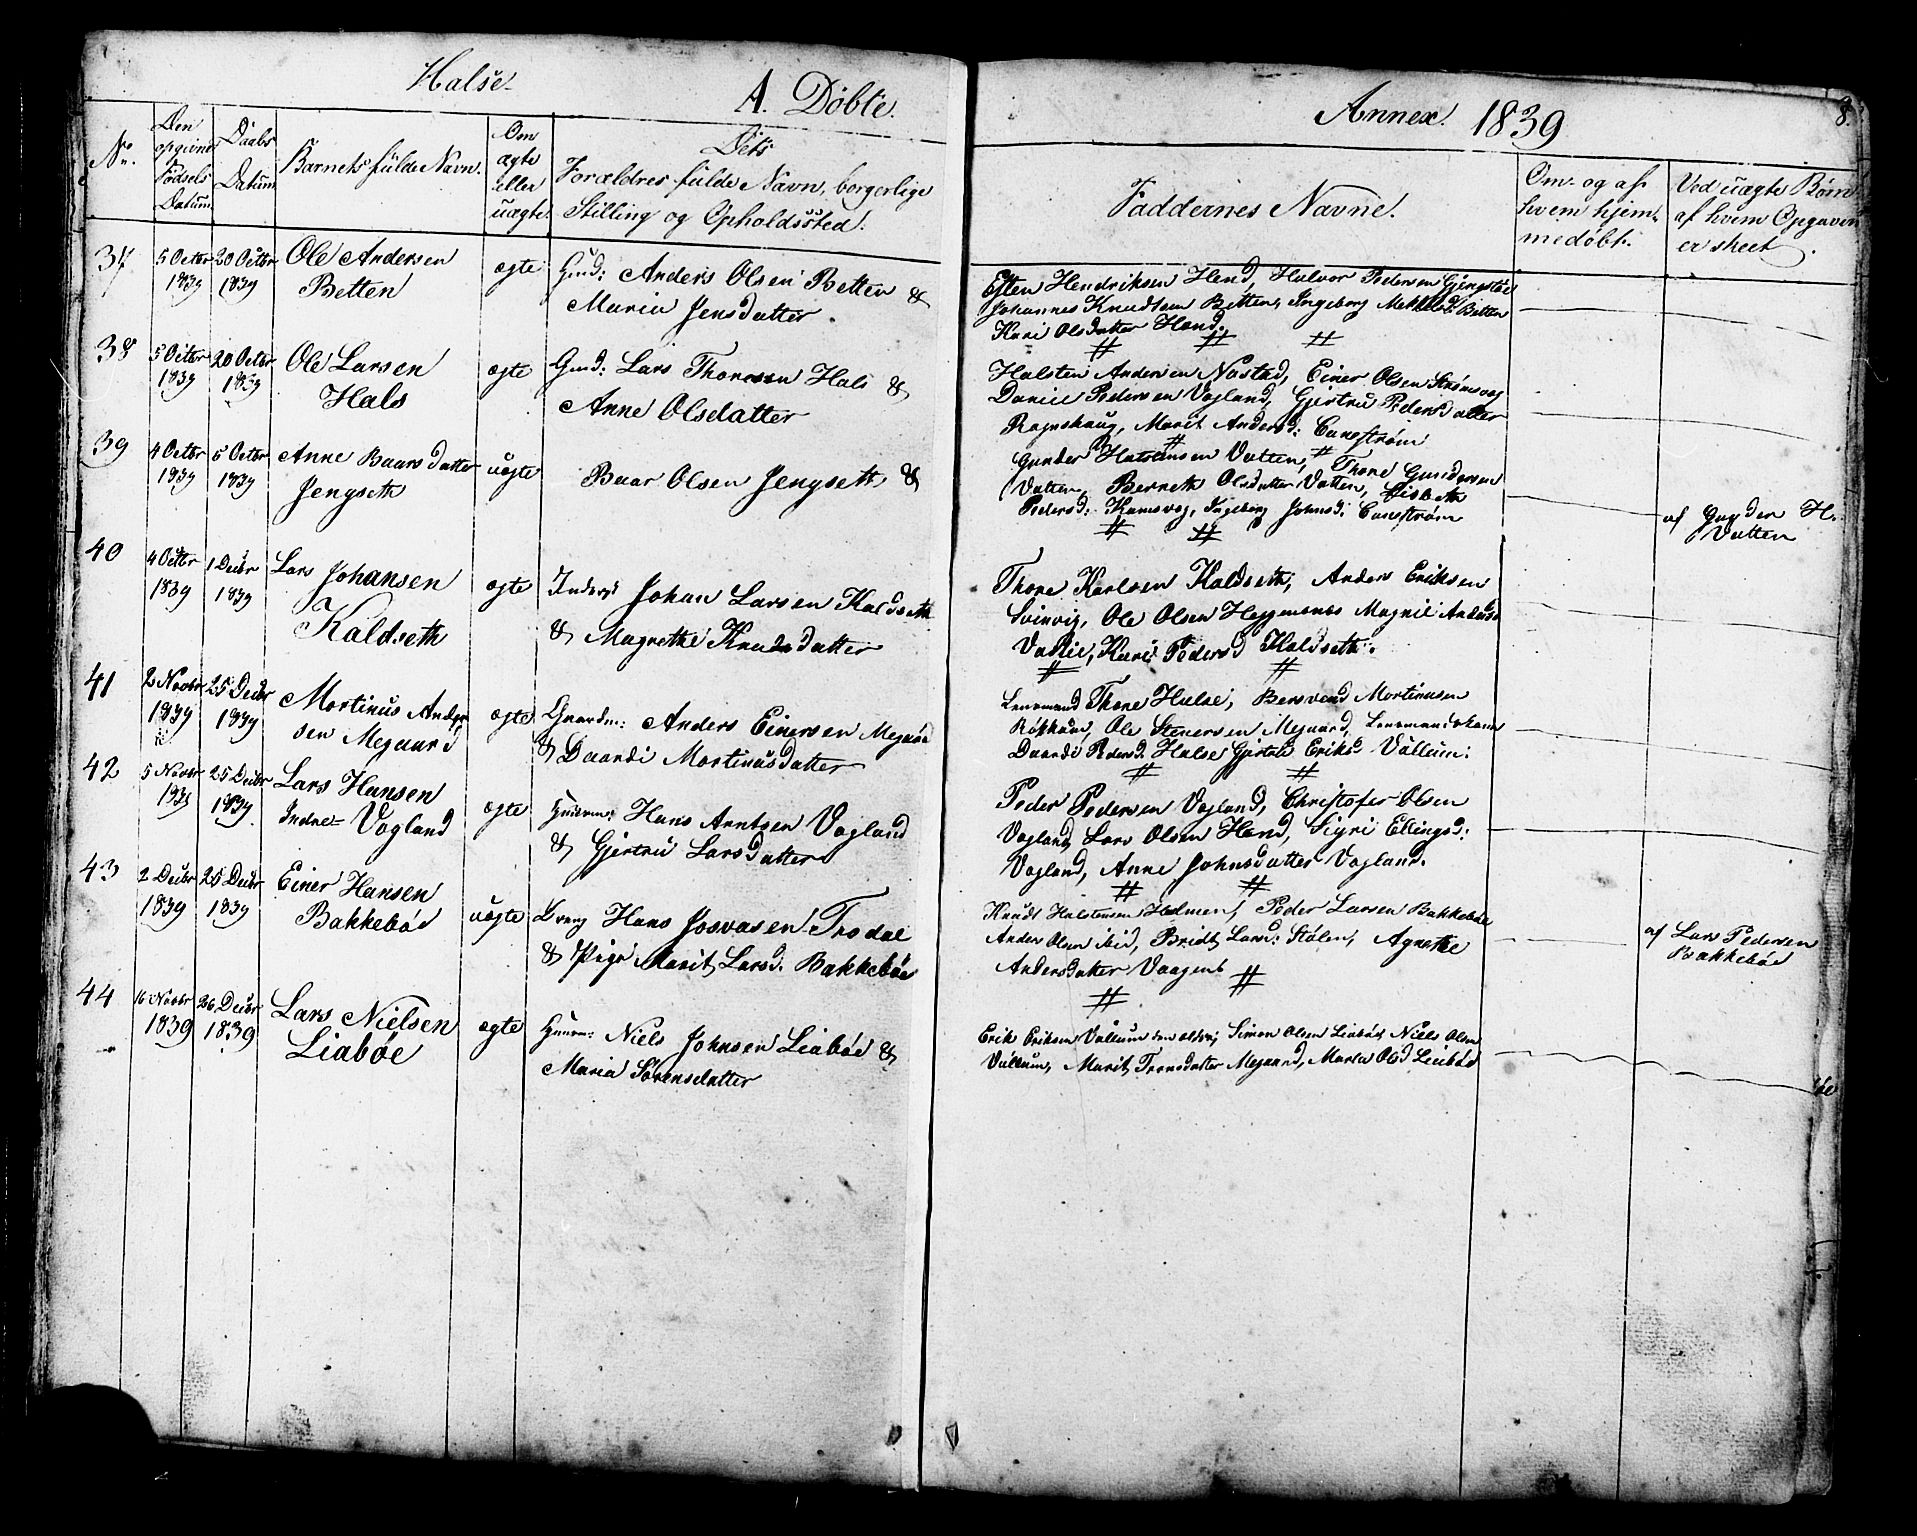 Halse
A. Döbte.
Annex. 1839
8.
No.
Den opgivne Födsels Datum
Daabs Datum
Barnets fulde Navn.
Om ægte eller uægte.
Dets Forældres fulde Navn, borgerlige Stilling og Opholdssted.
Faddernes Navne.
Om og af hvem hjemmedöbt.
Ved uægte Börn af hvem Opgaven er skeet.
37
5 Octbr 1839
20 Octbr 1839
Ole Andersen
Betten
ægte
Gmd: Anders Olsen Betten &
Maria Jensdatter.
Esten Hendriksen Hend, Halvor Pedersen
Johannes Knudtsen Betten, Ingeborg Betten
Kari Olsdatter Hend.
38
5 Octbr 1839
20 Octbr 1839
Ole Larsen
Hals
ægte
Gmd: Lars Thoresen Hals &
Anne Olsdatter
Halsten Andersen Nastad, Einer Olsen
Daniel Pedersen Vagland, Gjertru Pedersdatter
Rognskaug, Marit Andersd:
39
4 Octbr 1839
5 Octbr 1839
Anne Baarsdatter
Jengseth
uægte
Baar Olsen Jengseth &
Gunder Halstensen Vatten, Thore Gundersen
Vatten, Berreth Olsdatter Vatten, Lisbeth
Pedersd: Kamsvog, Ingeborg Johnsd:
af Gunder H.
Vatten
40
4 Octbr 1839
1 Decbr 1839
Lars Johansen
Kaldseth
ægte
Inders: Johan Larsen Kaldseth
& Magrethe Knudsdatter
Thore Karlsen Kaldseth, Anders Eriksen
Svinvig, Ole Olsen Heggemsnes
Kari Pedersd Kaldseth.
41
2 Novbr 1839
25 Decbr 1839
Mortinus Andersen
Megaard
ægte
Gaardm: Anders Einersen Megaard
& Baardi Mortinusdatter
Lensmand Thore Halse, Bersvend Mortinusen
Rökkum, Ole Stenersen Megaard,
Baardi Pedersd. Halse Gjertru Eriksd Vullum:
42
5 Novbr 1839
25 Decbr 1839
Lars Hansen
Indre Vagland
ægte
Huusm: Hans Arntsen Vagland
& Gjertru Larsdatter
Peder Pedersen Vagland, Christofer Olsen
Vagland, Lars Olsen Hend, Sigri Ellingsd:
Vagland, Anne Johnsdatter Vagland.
43
2 Decbr 1839
25 Decbr 1839
Einer Hansen
Bakkeböe
uægte
Dreng Hans Josvasen Trodal
& Pige Marit Larsd. Bakkeböe
Knudt Halstensen Holmen, Peder Larsen Bakkeböe
Anders Olsen ibid, Bridt Larsd: Stölen, Agnethe
Andersdatter Vaagenes
af Lars Pedersen
Bakkeböe
44
16 Novbr 1839
26 Decbr 1839
Lars Nielsen
Liaböe
ægte
Huusm: Niels Johnsen Liaböe &
Maria Sörensdatter
Erik Eriksen Vullum den eldre, Simon Olsen Liaböe, Niels Olsen
Vullum, Marit Tronsdatter Megaard, Marta Olsd Liaböe